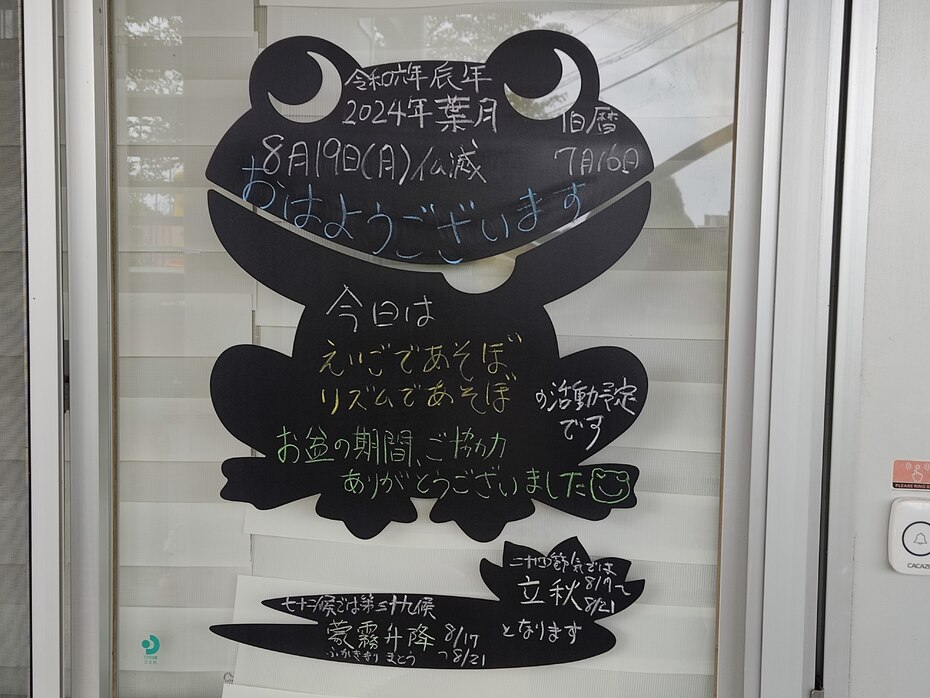 令和六年辰年
2024年葉月
旧暦
8月19日(月)仏滅
7月16日
おはようございます
今日は
えいごであそぼ、
リズムであそぼ
の活動予定
です
お盆の期間、ご協力
ありがとうございました
二十四節気では
立秋 8/7〜
8/21
となります
七十二候では第三十九候
蒙霧升降 8/17
ふかききり まとう 〜8/21
CACAZI